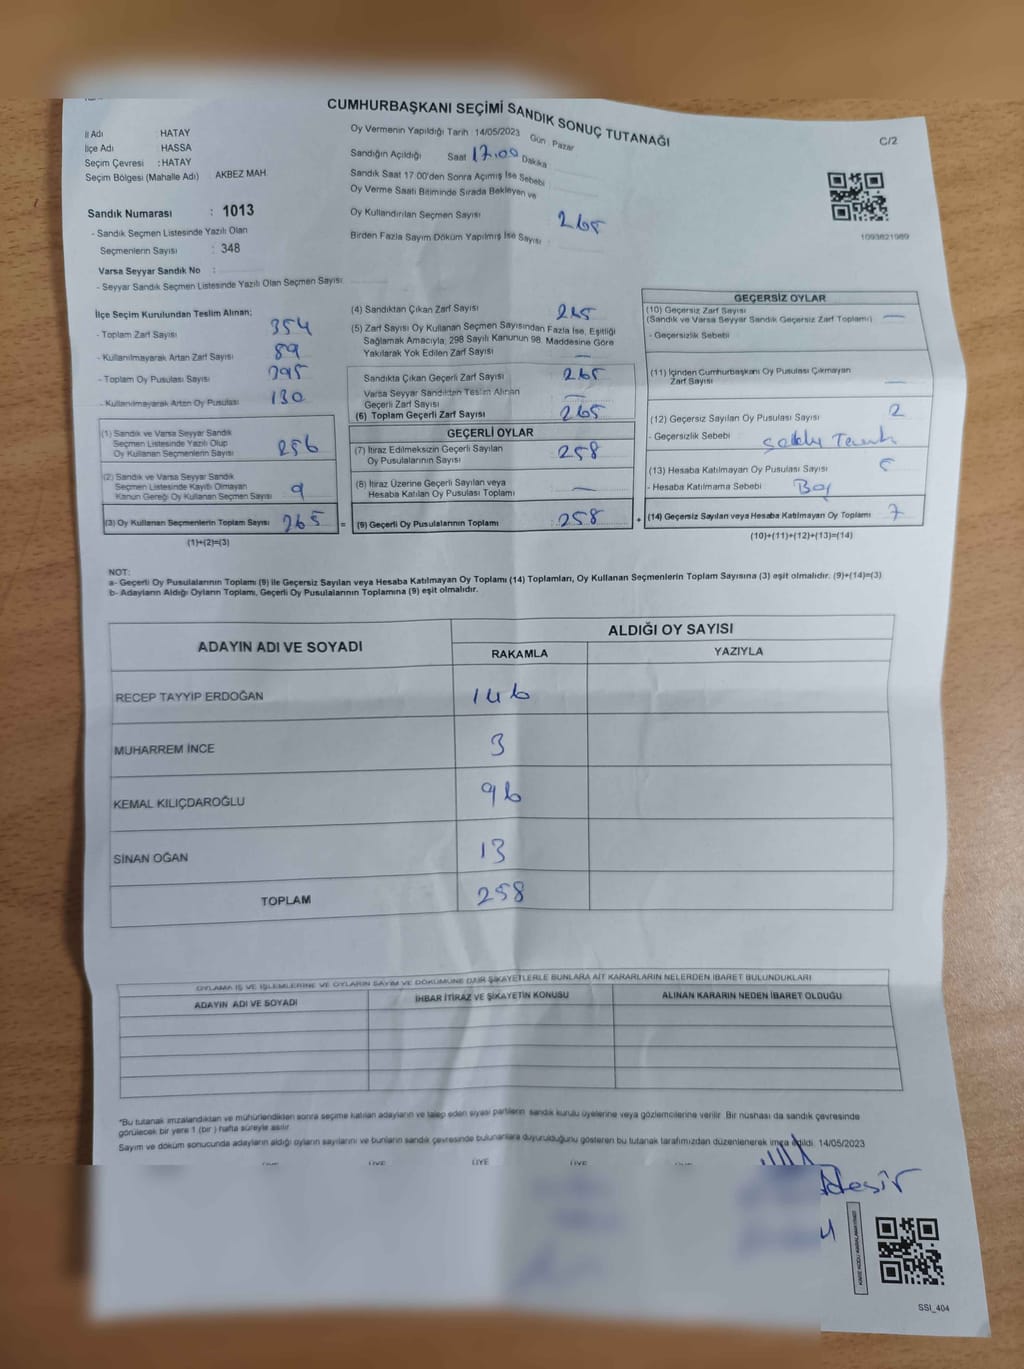 CUMHURBAŞKANI SEÇİMİ SANDIK SONUÇ TUTANAĞI
C/2
İl Adı HATAY
İlçe Adı : HASSA
Seçim Çevresi : HATAY
Seçim Bölgesi (Mahalle Adı) : AKBEZ MAH.
Sandık Numarası : 1013
- Sandık Seçmen Listesinde Yazılı Olan
Seçmenlerin Sayısı : 348
Varsa Seyyar Sandık No :
- Seyyar Sandık Seçmen Listesinde Yazılı Olan Seçmen Sayısı:
Oy Vermenin Yapıldığı Tarih : 14/05/2023 Gün : Pazar
Sandığın Açıldığı Saat 17.00 Dakika
Sandık Saat 17:00'den Sonra Açımış İse Sebebi
Oy Verme Saati Bitiminde Sırada Bekleyen ve
Oy Kullandırılan Seçmen Sayısı 265
Birden Fazla Sayım Döküm Yapılmış İse Sayısı :
1093821989
İlçe Seçim Kurulundan Teslim Alınan;
- Toplam Zarf Sayısı 354
- Kullanılmayarak Artan Zarf Sayısı 89
- Toplam Oy Pusulası Sayısı 395
- Kullanılmayarak Artan Oy Pusulası 130
(1) Sandık ve Varsa Seyyar Sandık
Seçmen Listesinde Yazılı Olup
Oy Kullanan Seçmenlerin Sayısı 256
(2) Sandık ve Varsa Seyyar Sandık
Seçmen Listesinde Kayıtlı Olmayan
Kanun Gereği Oy Kullanan Seçmen Sayısı 9
(3) Oy Kullanan Seçmenlerin Toplam Sayısı 265 =
(1)+(2)=(3)
(4) Sandıktan Çıkan Zarf Sayısı 265
(5) Zarf Sayısı Oy Kullanan Seçmen Sayısından Fazla İse, Eşitliği
Sağlamak Amacıyla; 298 Sayılı Kanunun 98. Maddesine Göre
Yakılarak Yok Edilen Zarf Sayısı —
Sandıkta Çıkan Geçerli Zarf Sayısı 265
Varsa Seyyar Sandıktan Teslim Alınan
Geçerli Zarf Sayısı —
(6) Toplam Geçerli Zarf Sayısı 265
GEÇERLİ OYLAR
(7) İtiraz Edilmeksizin Geçerli Sayılan
Oy Pusulalarının Sayısı 258
(8) İtiraz Üzerine Geçerli Sayılan veya
Hesaba Katılan Oy Pusulası Toplamı —
(9) Geçerli Oy Pusulalarının Toplamı : 258 +
GEÇERSİZ OYLAR
(10) Geçersiz Zarf Sayısı
(Sandık ve Varsa Seyyar Sandık Geçersiz Zarf Toplamı) —
- Geçersizlik Sebebi
(11) İçinden Cumhurbaşkanı Oy Pusulası Çıkmayan
Zarf Sayısı —
(12) Geçersiz Sayılan Oy Pusulası Sayısı 2
- Geçersizlik Sebebi
(13) Hesaba Katılmayan Oy Pusulası Sayısı 5
- Hesaba Katılmama Sebebi Boş
(14) Geçersiz Sayılan veya Hesaba Katılmayan Oy Toplamı 7
(10)+(11)+(12)+(13)=(14)
NOT:
a- Geçerli Oy Pusulalarının Toplamı (9) ile Geçersiz Sayılan veya Hesaba Katılmayan Oy Toplamı (14) Toplamları, Oy Kullanan Seçmenlerin Toplam Sayısına (3) eşit olmalıdır. (9)+(14)=(3)
b- Adayların Aldığı Oyların Toplamı, Geçerli Oy Pusulalarının Toplamına (9) eşit olmalıdır.
ADAYIN ADI VE SOYADI
ALDIĞI OY SAYISI
RAKAMLA YAZIYLA
RECEP TAYYİP ERDOĞAN 146
MUHARREM İNCE 3
KEMAL KILIÇDAROĞLU 96
SİNAN OĞAN 13
TOPLAM 258
OYLAMA İŞ VE İŞLEMLERİNE VE OYLARIN SAYIM VE DÖKÜMÜNE DAİR ŞİKAYETLERLE BUNLARA AİT KARARLARIN NELERDEN İBARET BULUNDUKLARI
ADAYIN ADI VE SOYADI İHBAR İTİRAZ VE ŞİKAYETİN KONUSU ALINAN KARARIN NEDEN İBARET OLDUĞU
*Bu tutanak imzalandıktan ve mühürlendikten sonra seçime katılan adayların ve talep eden siyasi partilerin sandık kurulu üyelerine veya gözlemcilerine verilir. Bir nüshası da sandık çevresinde
görülecek bir yere 1 (bir) hafta süreyle asılır.
Sayım ve döküm sonucunda adayların aldığı oyların sayılarını ve bunların sandık çevresinde bulunanlara duyurulduğunu gösteren bu tutanak tarafımızdan düzenlenerek imza edildi. 14/05/2023
ÜYE ÜYE ÜYE
SSI_404